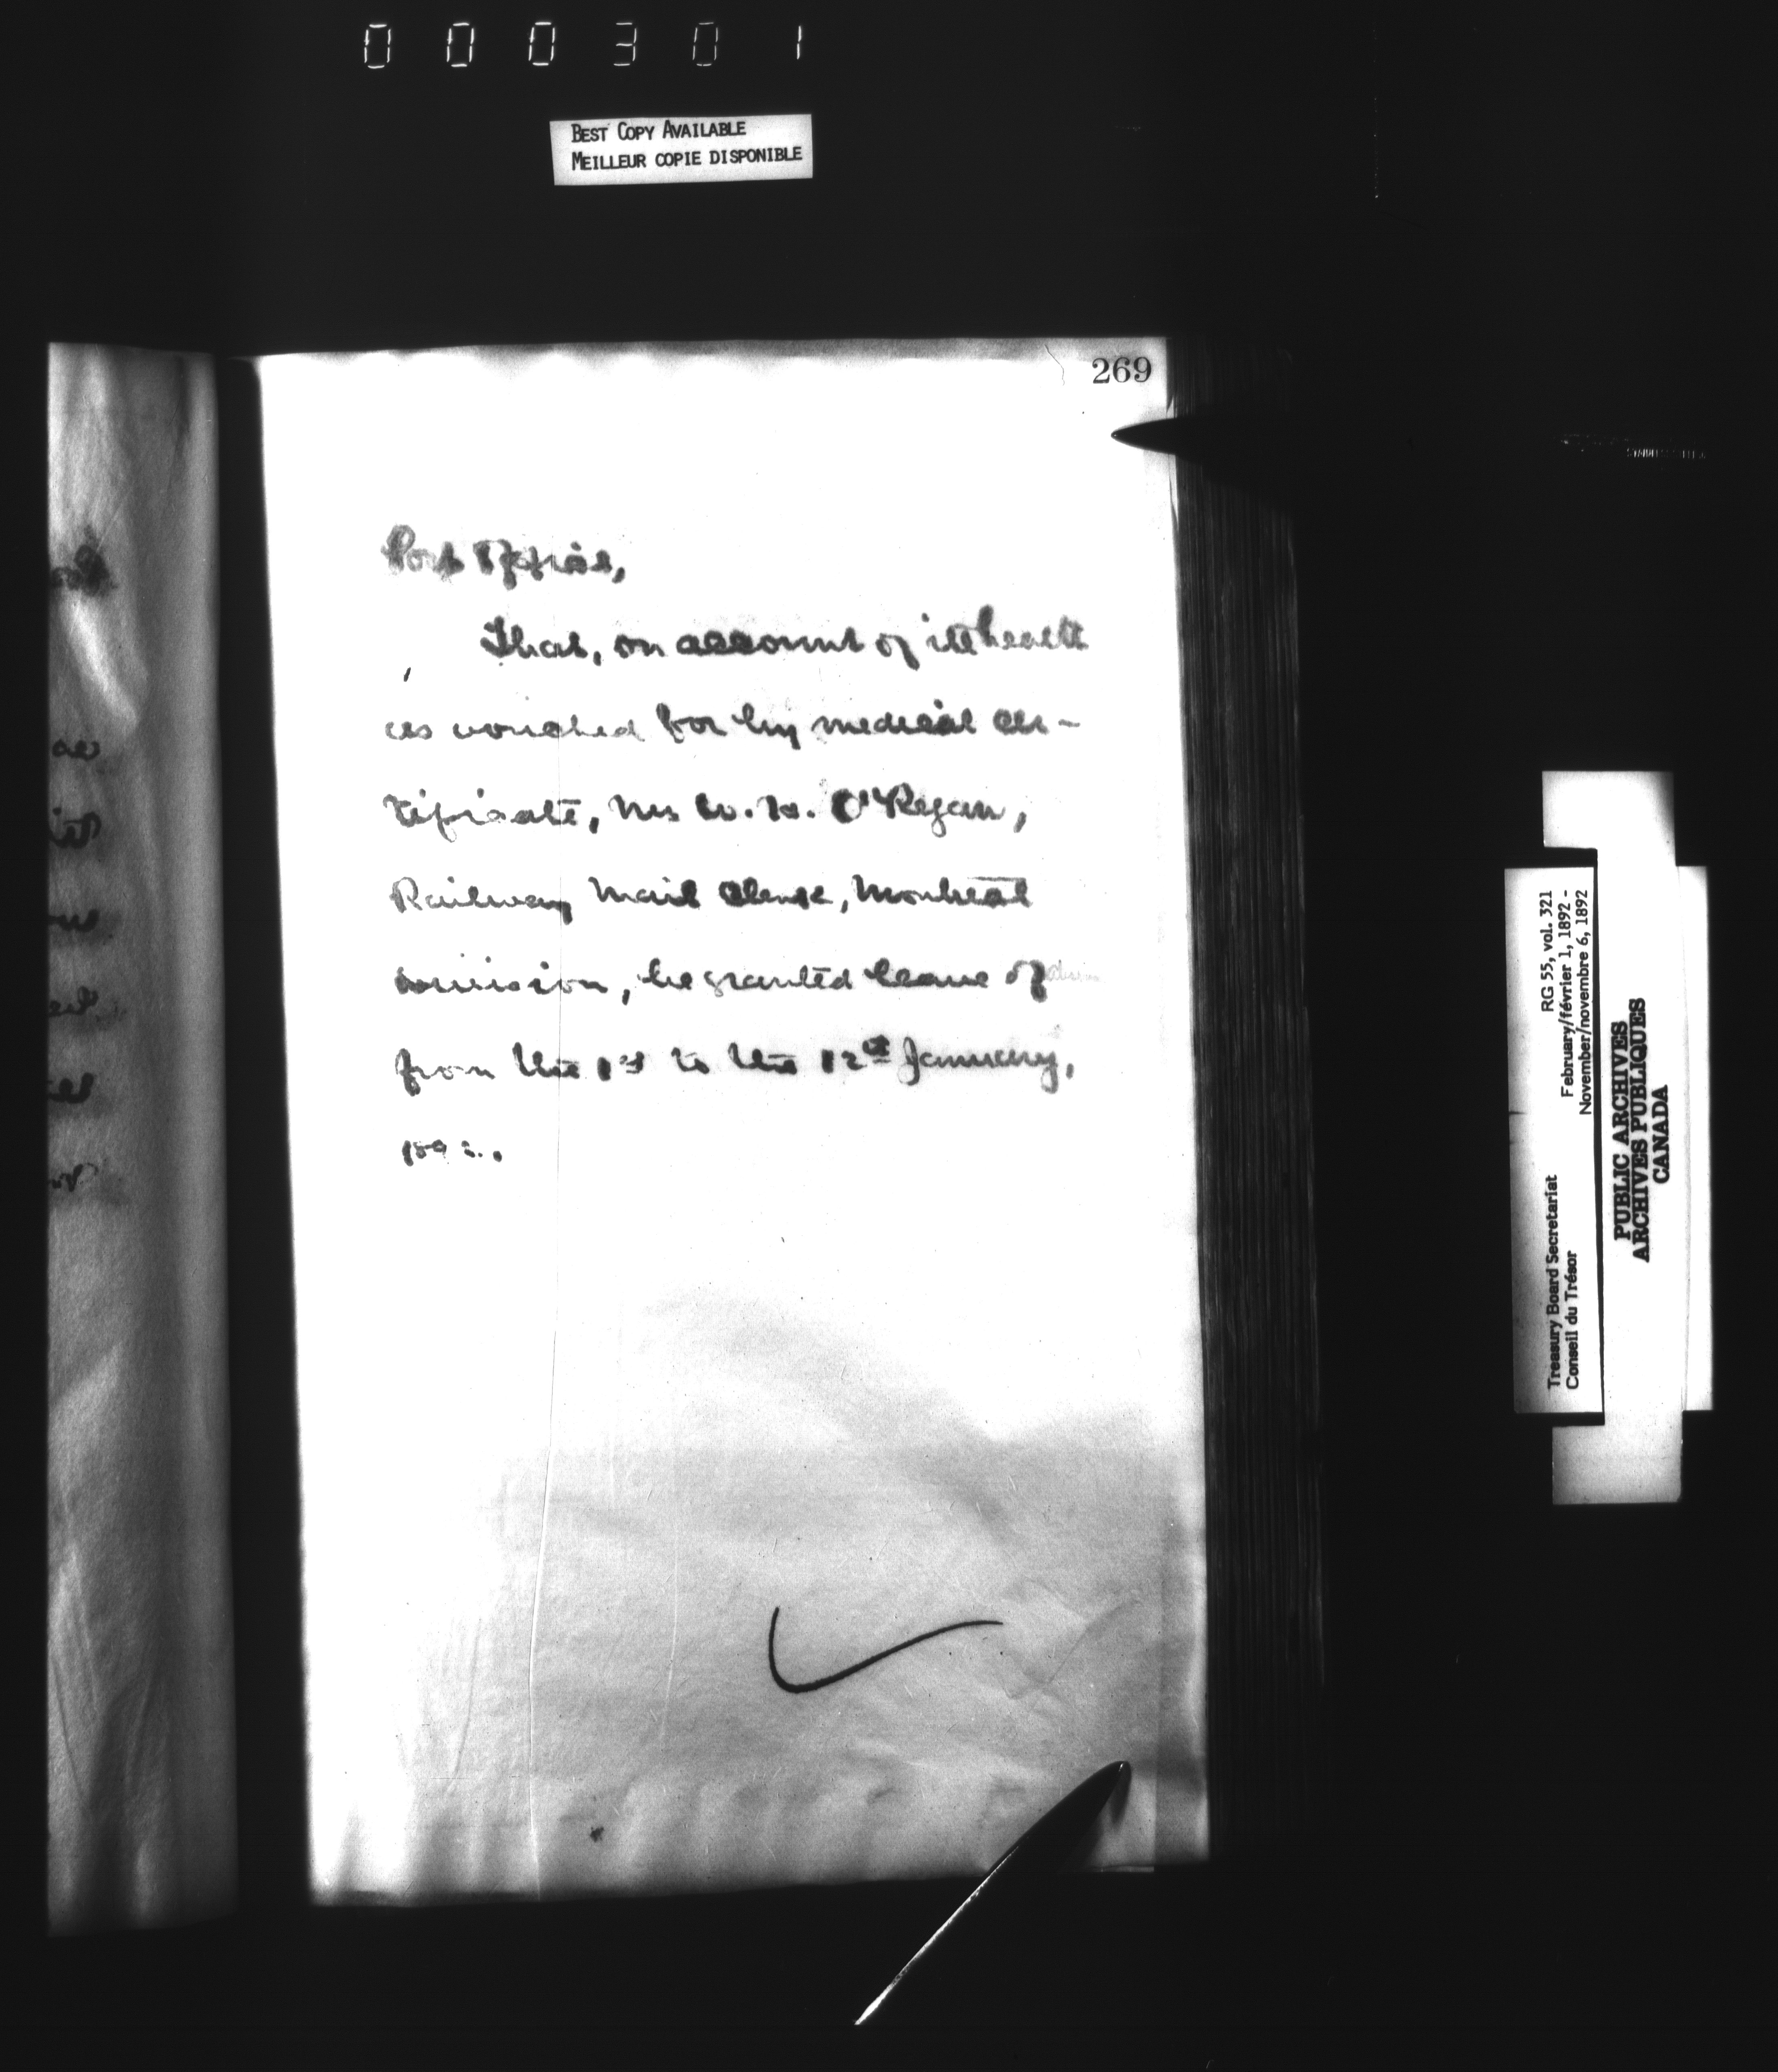 000301
BEST COPY AVAILABLE
MEILLEUR COPIE DISPONIBLE
269
Post Office,
That, on account of ill health
as vouched for by medical cer-
tificate, Mr W. H. O'Regan,
Railway Mail Clerk, Montreal
Division, be granted leave of
from the 1st to the 12th January,
1892.
Treasury Board Secretariat RG 55, vol. 321
Conseil du Trésor February/février 1, 1892 -
November/novembre 6, 1892
PUBLIC ARCHIVES
ARCHIVES PUBLIQUES
CANADA